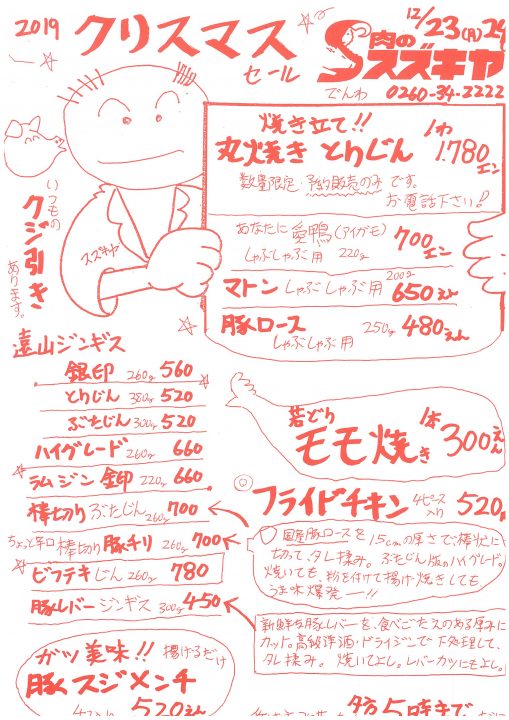 2019 クリスマス セール
肉の スズキヤ
12/23(月)24
でんわ 0260-34-2222
焼き立て!!
丸焼き とりじん 1わ 1.780エン
数量限定・予約販売のみです。
お電話下さい!!
あなたに 愛鴨(アイガモ) 700エン
しゃぶしゃぶ用 220g
マトン しゃぶしゃぶ用 200g 650えん
豚ロース 250g 480えん
しゃぶしゃぶ用
いつもの
クジ引き
あります。
スズキヤ
遠山ジンギス
銀印 260g 560
とりじん 380g 520
ぶたじん 300g 520
ハイグレード 260g 660
ラムジン 金印 220g 660
棒切りぶたじん 260g 700
ちょっと辛口 棒切り 豚チリ 260g 700
ビフテキじん 260g 780
豚レバー ジンギス 300g 450
若どり
モモ焼き 1本 300えん
フライドチキン 4ピース入り 520
国産豚ロースを 1.5cmの厚さで、棒状に
切って、タレ揉み。ぶたじん版のハイグレード。
焼いても、粉を付けて揚げ焼きしても
うま味爆発ー!!
新鮮な豚レバーを、食べごたえのある厚みに
カット。高級洋酒・ドライジンで下処理して、
タレ揉み。焼いてよし。レバーカツにもよし。
ガツ美味!! 揚げるだけ
豚スジメンチ
520えん
5時まで